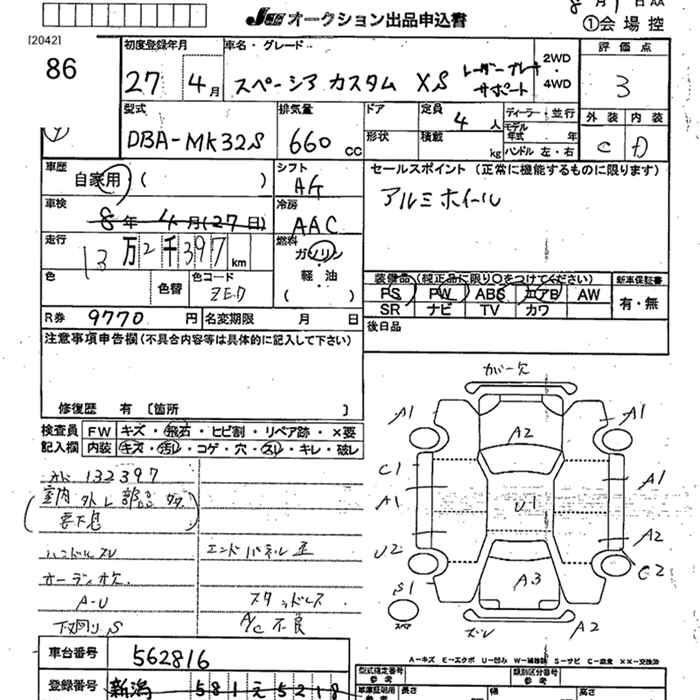 8月 1日 AA
JU オークション出品申込書
①会場控
[2042]
86
初度登録年月
27 4月
車名・グレード
スペーシア カスタム XS
レーザーブレーキ
サポート
2WD
・
4WD
評価点
3
型式
DBA-MK32S
排気量
660 cc
ドア
形状
定員
4 人
積載
kg
ディーラー・並行
モデル年式 年
ハンドル 左・右
外装 内装
C D
車歴
自家用 ( )
シフト
AT
セールスポイント (正常に機能するものに限ります)
アルミホイール
車検
8年 4月(27日)
冷房
AAC
走行
13万2千397 km
燃料
ガソリン
軽・油
( )
色
色替
色コード
ZE7
装備品 (純正品に限り○をつけてください)
新車保証書
PS PW ABS エアB AW
SR ナビ TV カワ
有・無
R券 9770 円
名変期限 月 日
後日品
注意事項申告欄 (不具合内容等は具体的に記入して下さい)
修復歴 有 〔箇所 〕
検査員
記入欄
FW キズ・飛石・ヒビ割・リペア跡・×要
内装 キズ・汚レ・コゲ・穴・スレ・キレ・破レ
132397
室内 外し部品 多
要下見
ハンドルスレ
エンドパネル歪
オーディオ欠
A-U
スタッドレス
下回りS
A/C不良
ガバー欠
A1
A1
A2
C1
A1
A1
U1
U2
A2
C2
S1
A3
スペア
ズレ
A2
A-キズ E-エクボ U-凹み W-補修跡 S-サビ C-腐食 ××-交換済
車台番号
562816
登録番号
新潟 581 え 5218
型式指定番号
参考
類別区分番号
参考
長さ
幅
高さ